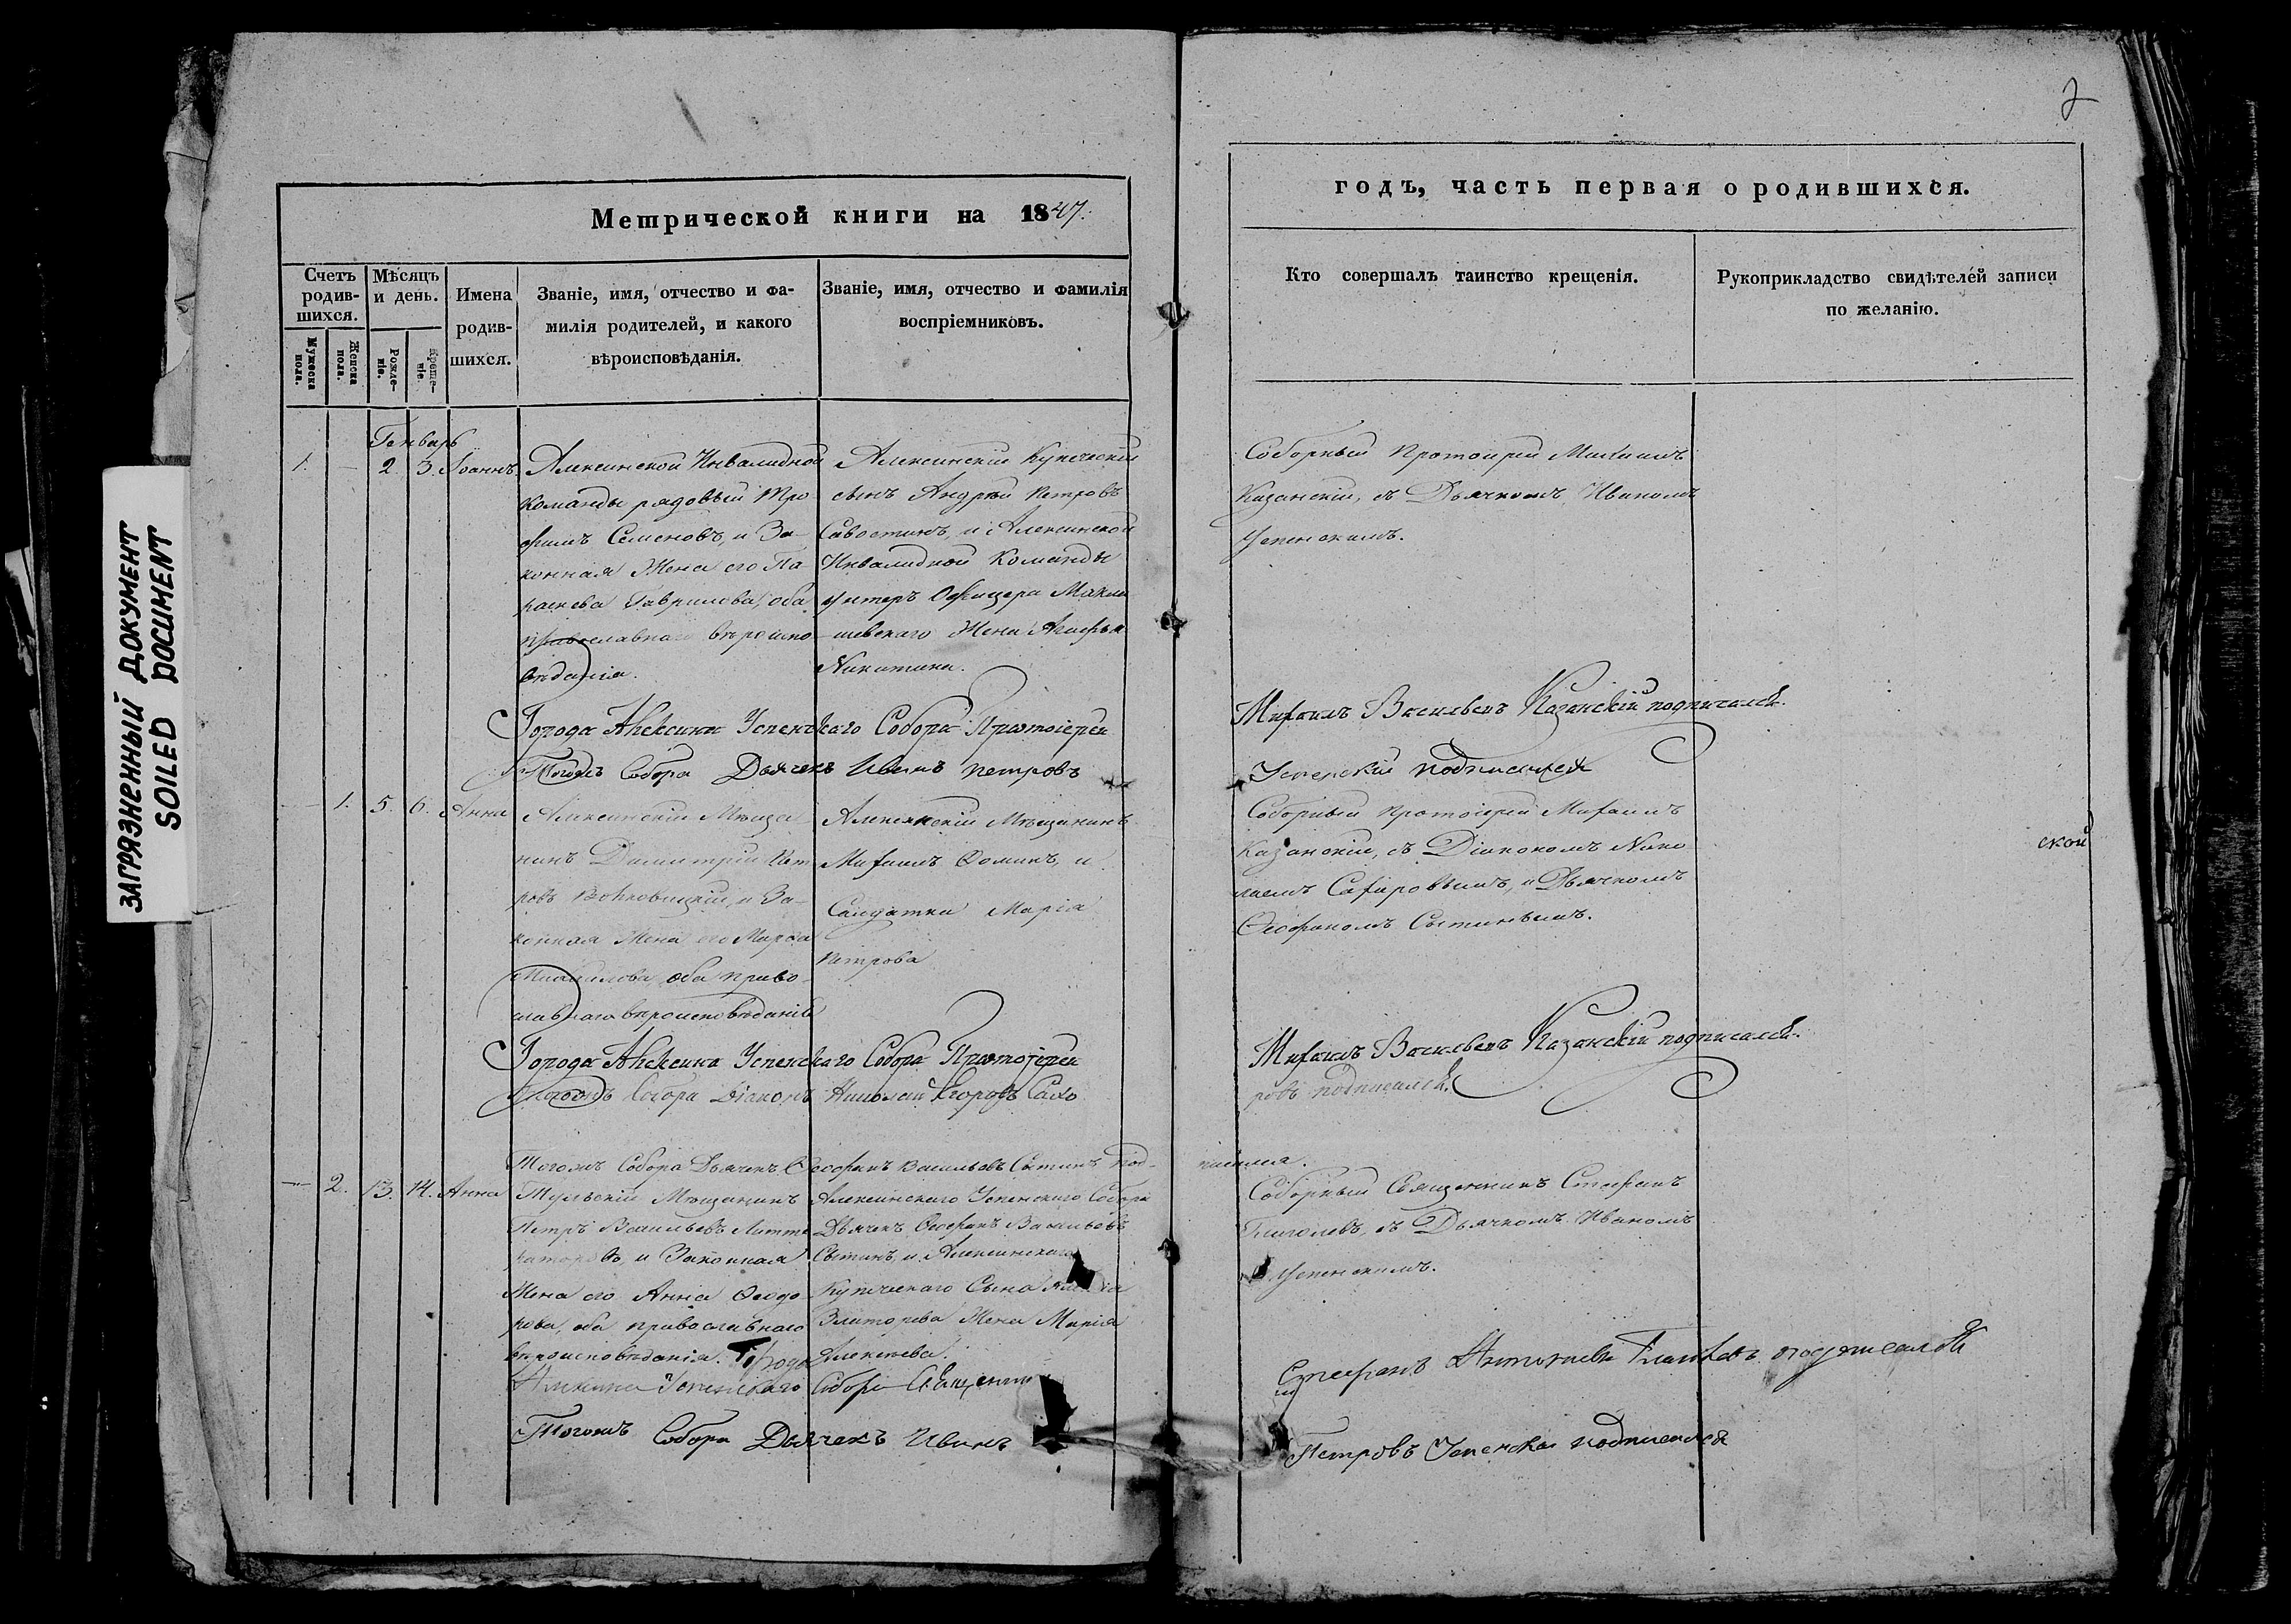 ЗАГРЯЗНЕННЫЙ ДОКУМЕНТ
SOILED DOCUMENT
Метрической книги на 1847.
Счетъ родив-шихся.
Мужеска пола.
Женска пола.
Мѣсяцъ и день.
Рожде-ніе.
Креще-ніе.
Имена
родив-
шихся.
Званіе, имя, отчество и фа-
милія родителей, и какого
вѣроисповѣданія.
Званіе, имя, отчество и фамилія
воспріемниковъ.
Генварь
1. — 2. 3. Іоаннъ
Алексинской Инвалидной
команды рядовый Тро
фимъ Семеновъ, и За-
конная Жена его Па
раскева Гаврилова, оба
православнаго вѣроиспо
вѣданія.
Алексинскій Купеческій
сынъ Андрей Петровъ
Савостинъ, и Алексинской
Инвалидной Команды
унтеръ Офицера
Жена Агафья
Никитина.
Города Алексина Успенскаго Собора Протоіерей
Тогожъ Собора Дьячекъ Иванъ Петровъ
— 1. 5. 6. Анна
Алексинскій Мѣща
нинъ Димитрій Пет
ровъ и За-
конная Жена его Марфа
Михайлова, оба право
славнаго вѣроисповѣданія
Алексинскій Мѣщанинъ
Михаилъ Фоминъ, и
Салдатка Марія
Петрова
Города Алексина Успенскаго Собора Протоіерей
Тогожъ Собора Діаконъ Николай Егоровъ Сахо
Тогожъ Собора Дьячекъ Ѳеофанъ Васильевъ Сытинъ под-
— 2. 13. 14. Анна
Тульскій Мѣщанинъ
Петръ Васильевъ Литте
раторовъ, и Законная
Жена его Анна Ѳеодо
рова, оба православнаго
вѣроисповѣданія.
Алексинскаго Успенскаго Собора
Дьячекъ Ѳеофанъ Васильевъ
Сытинъ, и Алексинскаго
Купеческаго Сына
Жена Марія
Алексѣева.
Города
Алексина Успенскаго Собора Священникъ
Тогожъ Собора Дьячекъ Иванъ
2
годъ, часть первая о родившихся.
Кто совершалъ таинство крещенія.
Рукоприкладство свидѣтелей записи
по желанію.
Соборный Протоіерей Михаилъ
Казанскій, съ Дьячкомъ Иваномъ
Успенскимъ.
Михаилъ Васильевъ Казанскій подписался.
Успенскій подписался
Соборный Протоіерей Михаилъ
Казанскій, съ Діакономъ Нико
лаемъ Сахаровымъ, и Дьячкомъ
Ѳеофаномъ Сытинымъ.
ской
Михаилъ Васильевъ Казанскій подписался.
ровъ подписался.
писался.
Соборный Священникъ Стефанъ
Глаголевъ, съ Дьячкомъ Иваномъ
Успенскимъ.
Стефанъ Глаголевъ подписался
Петровъ Успенской подписался